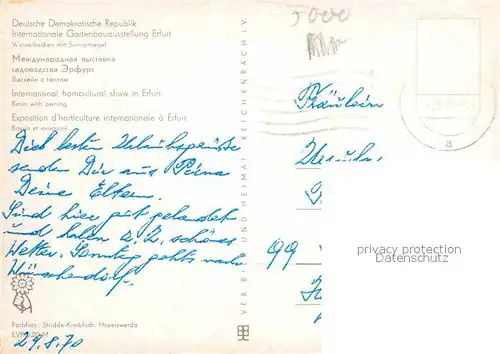 5000
Deutsche Demokratische Republik
Internationale Gartenbauausstellung Erfurt
Wasserbecken mit Sonnensegel
Международная выставка
садоводства Эрфурт
Бассейн с тентом
International horticultural show in Erfurt
Basin with awning
Exposition d'horticulture internationale à Erfurt
VEB BILD UND HEIMAT REICHENBACH i. V.
Fräulein
99
a
Die besten Urlaubsgrüße
senden Dir aus
Deine Eltern.
Sind hier gut gelandet
und haben z. Z. schönes
Wetter. Sonntag gehts nach
Wünschendorf.
Farbfoto: Stridde-Knobloch, Hoyerswerda
29.8.70
privacy protection
Datenschutz